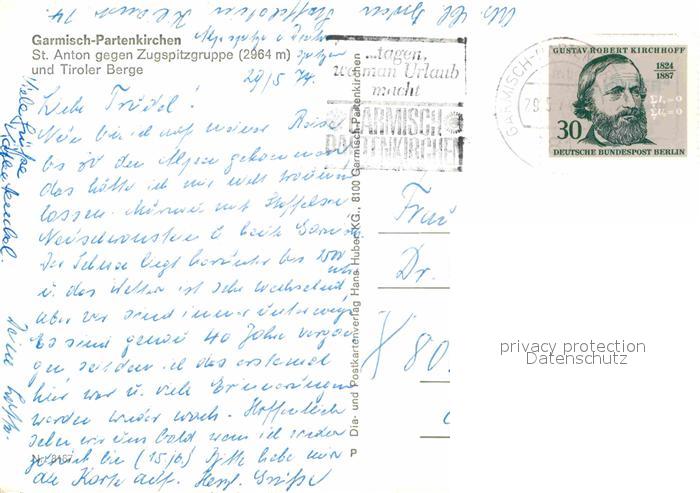 Garmisch-Partenkirchen
St. Anton gegen Zugspitzgruppe (2964 m)
und Tiroler Berge
29/5 74.
Liebe Trudel!
Nun bin ich auf meiner Reise
bis zu den Alpen gekommen
das hätte ich mir nicht träumen
lassen. Murnau mit Staffelsee
Neuschwanstein u. heute Garmisch.
Der Schnee liegt herunter bis 1500
u. das Wetter ist sehr wechselnd
aber wir sind immer unterwegs
Es sind genau 40 Jahre vergan
gen seitdem ich das erstemal
hier war u. viele Erinnerungen
werden wieder wach. Hoffentlich
sehen wir uns bald wenn ich wieder
zurück bin (15/6) Bitte hebe mir
die Karte auf. Herzl. Grüße
Deine
Viele Grüße
Nr. 8167
...tagen,
wo man Urlaub
macht
GARMISCH
PARTENKIRCHEN
GARMISCH-PARTENKIRCHEN
GUSTAV ROBERT KIRCHHOFF
1824
1887
ΣI.=0
ΣU.=0
30
DEUTSCHE BUNDESPOST BERLIN
Dia- und Postkartenverlag Hans Huber KG., 8100 Garmisch-Partenkirchen
P
Frau
Dr.
X 80
privacy protection
Datenschutz